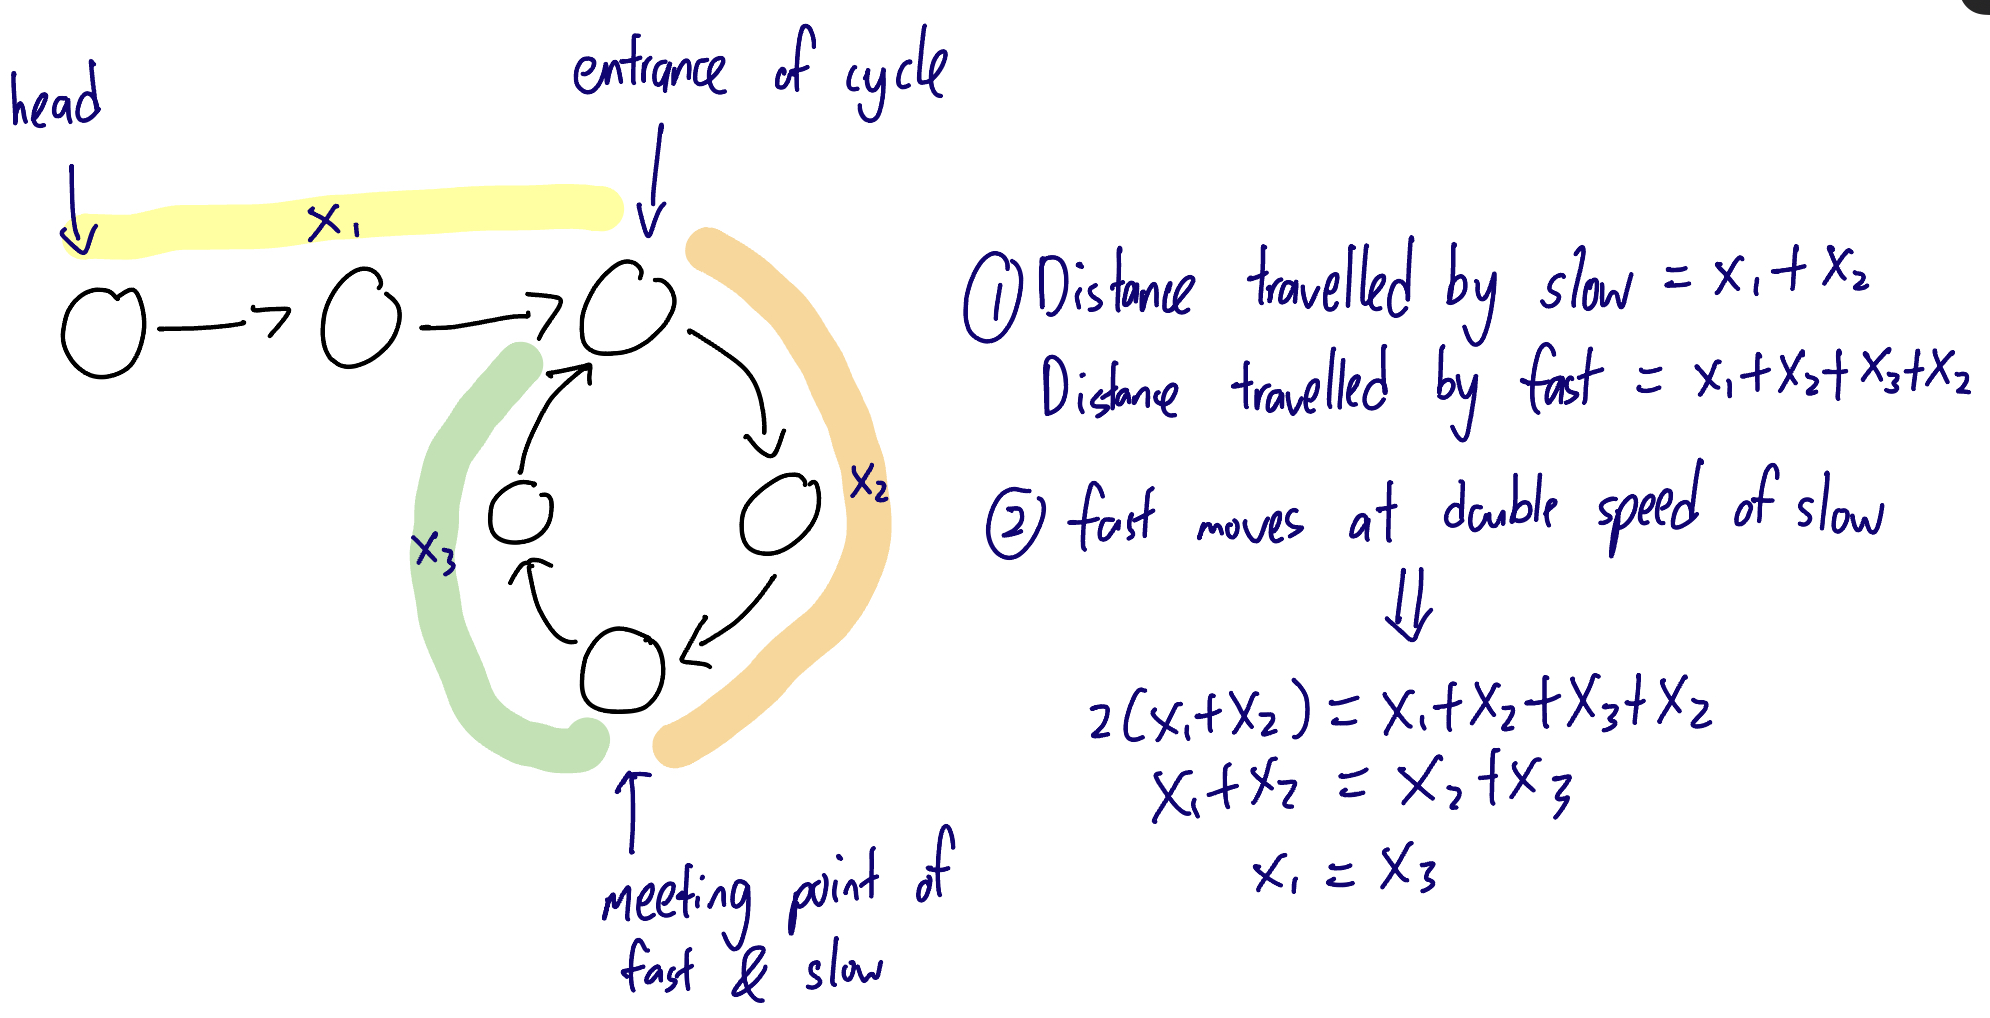 head
entrance of cycle
x₁
x₂
x₃
meeting point of
fast & slow
① Distance travelled by slow = x₁+x₂
Distance travelled by fast = x₁+x₂+x₃+x₂
② fast moves at double speed of slow
⇓
2(x₁+x₂) = x₁+x₂+x₃+x₂
x₁+x₂ = x₂+x₃
x₁ = x₃